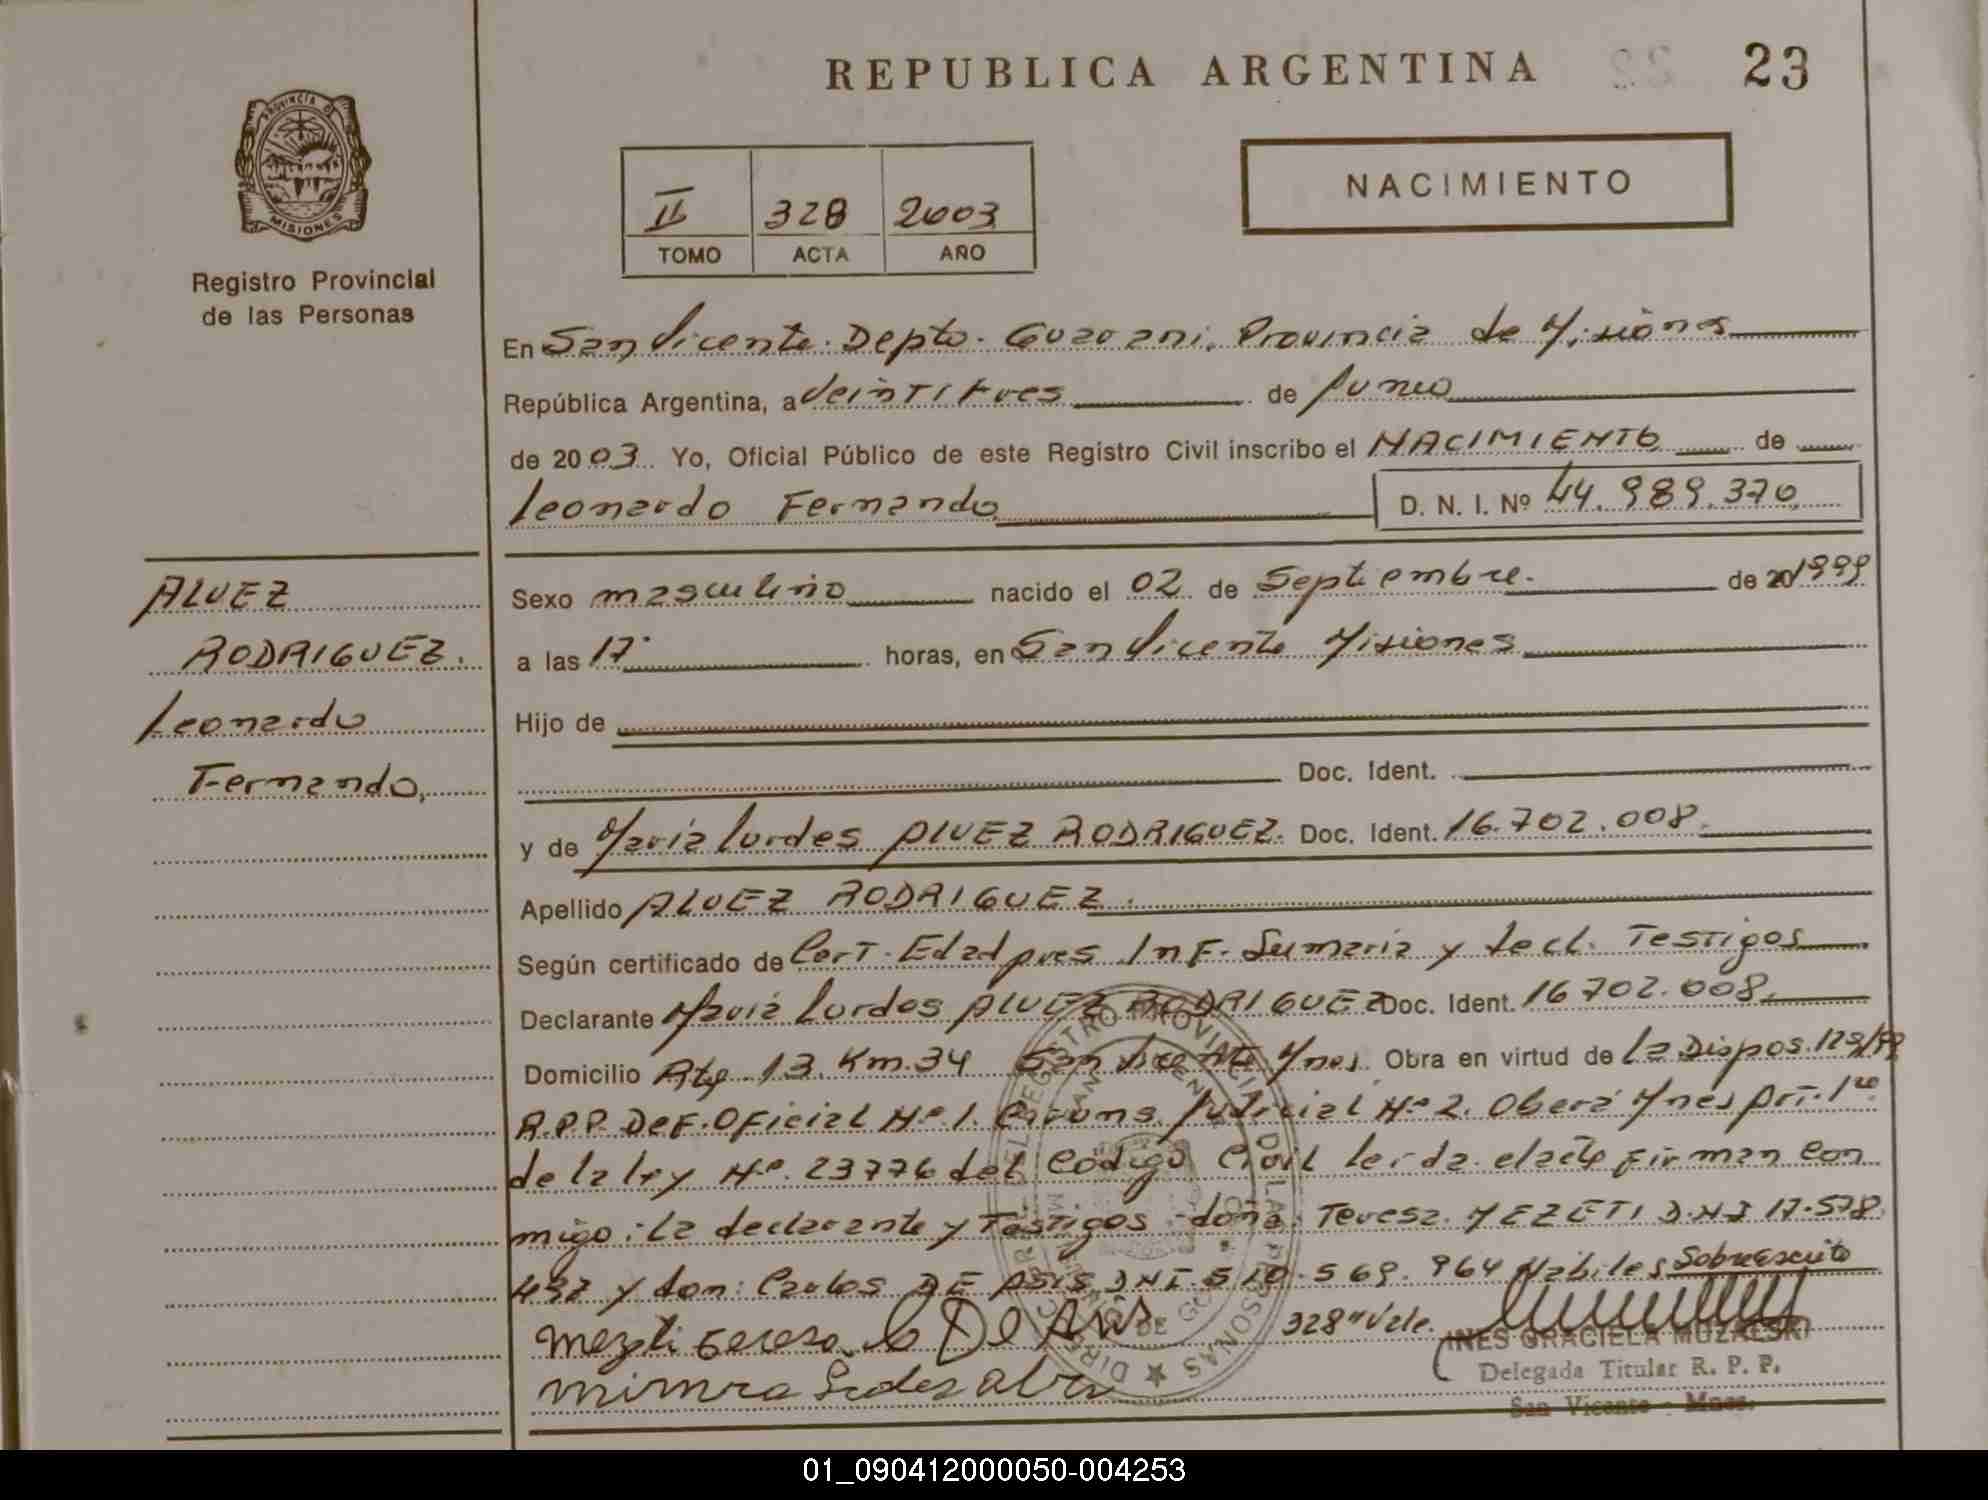 REPUBLICA ARGENTINA 23
PROVINCIA D
MISIONES
Registro Provincial
de las Personas
NACIMIENTO
II 328 2003
TOMO ACTA AÑO
En San Vicente. Depto. Guarani. Provincia de Misiones
República Argentina, a Veintitres de Junio
de 2003. Yo, Oficial Público de este Registro Civil inscribo el NACIMIENTO de
Leonardo Fernando D. N. I. Nº 44.989.370
ALVEZ
RODRIGUEZ.
Leonardo
Fernando.
Sexo masculino nacido el 02 de Septiembre. de 20 1999
a las 17 horas, en San Vicente Misiones
Hijo de
Doc. Ident.
y de Maria Lurdes ALVEZ RODRIGUEZ. Doc. Ident. 16.702.008.
Apellido ALVEZ RODRIGUEZ.
Según certificado de Cert. Edad pres. Inf. Sumaria y decl. Testigos
Declarante Maria Lurdes ALVEZ RODRIGUEZ Doc. Ident. 16702.008.
Domicilio Rta. 13. Km. 34 San Vicente Mnes. Obra en virtud de la Dispos. 129/99
R.P.P. Def. Oficial Nº 1. Circuns. Judicial Nº 2. Oberá Mnes Art. 1ro
de la ley Nº 23776 del Código Civil Leída el acta firman con
migo: la declarante y Testigos doña: Teresa MEZETI D.N.I 17.578.
492 y don: Carlos DE ASIS DNI. 510.569.964 Habiles Sobreescrito
328" Vale.
INES GRACIELA MUZALSKI
Delegada Titular R. P. P.
San Vicente - Mnes.
01_090412000050-004253